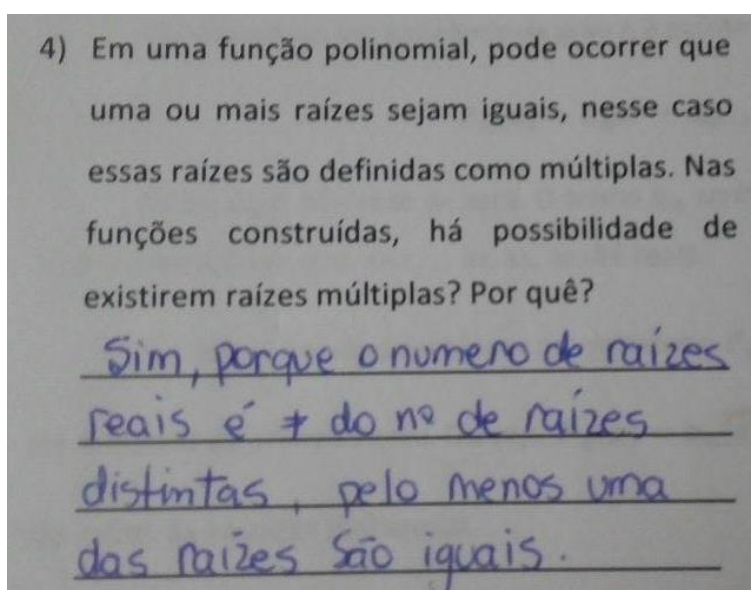 4) Em uma função polinomial, pode ocorrer que
uma ou mais raízes sejam iguais, nesse caso
essas raízes são definidas como múltiplas. Nas
funções construídas, há possibilidade de
existirem raízes múltiplas? Por quê?
Sim, porque o numero de raízes
reais é ≠ do nº de raízes
distintas, pelo menos uma
das raízes são iguais.